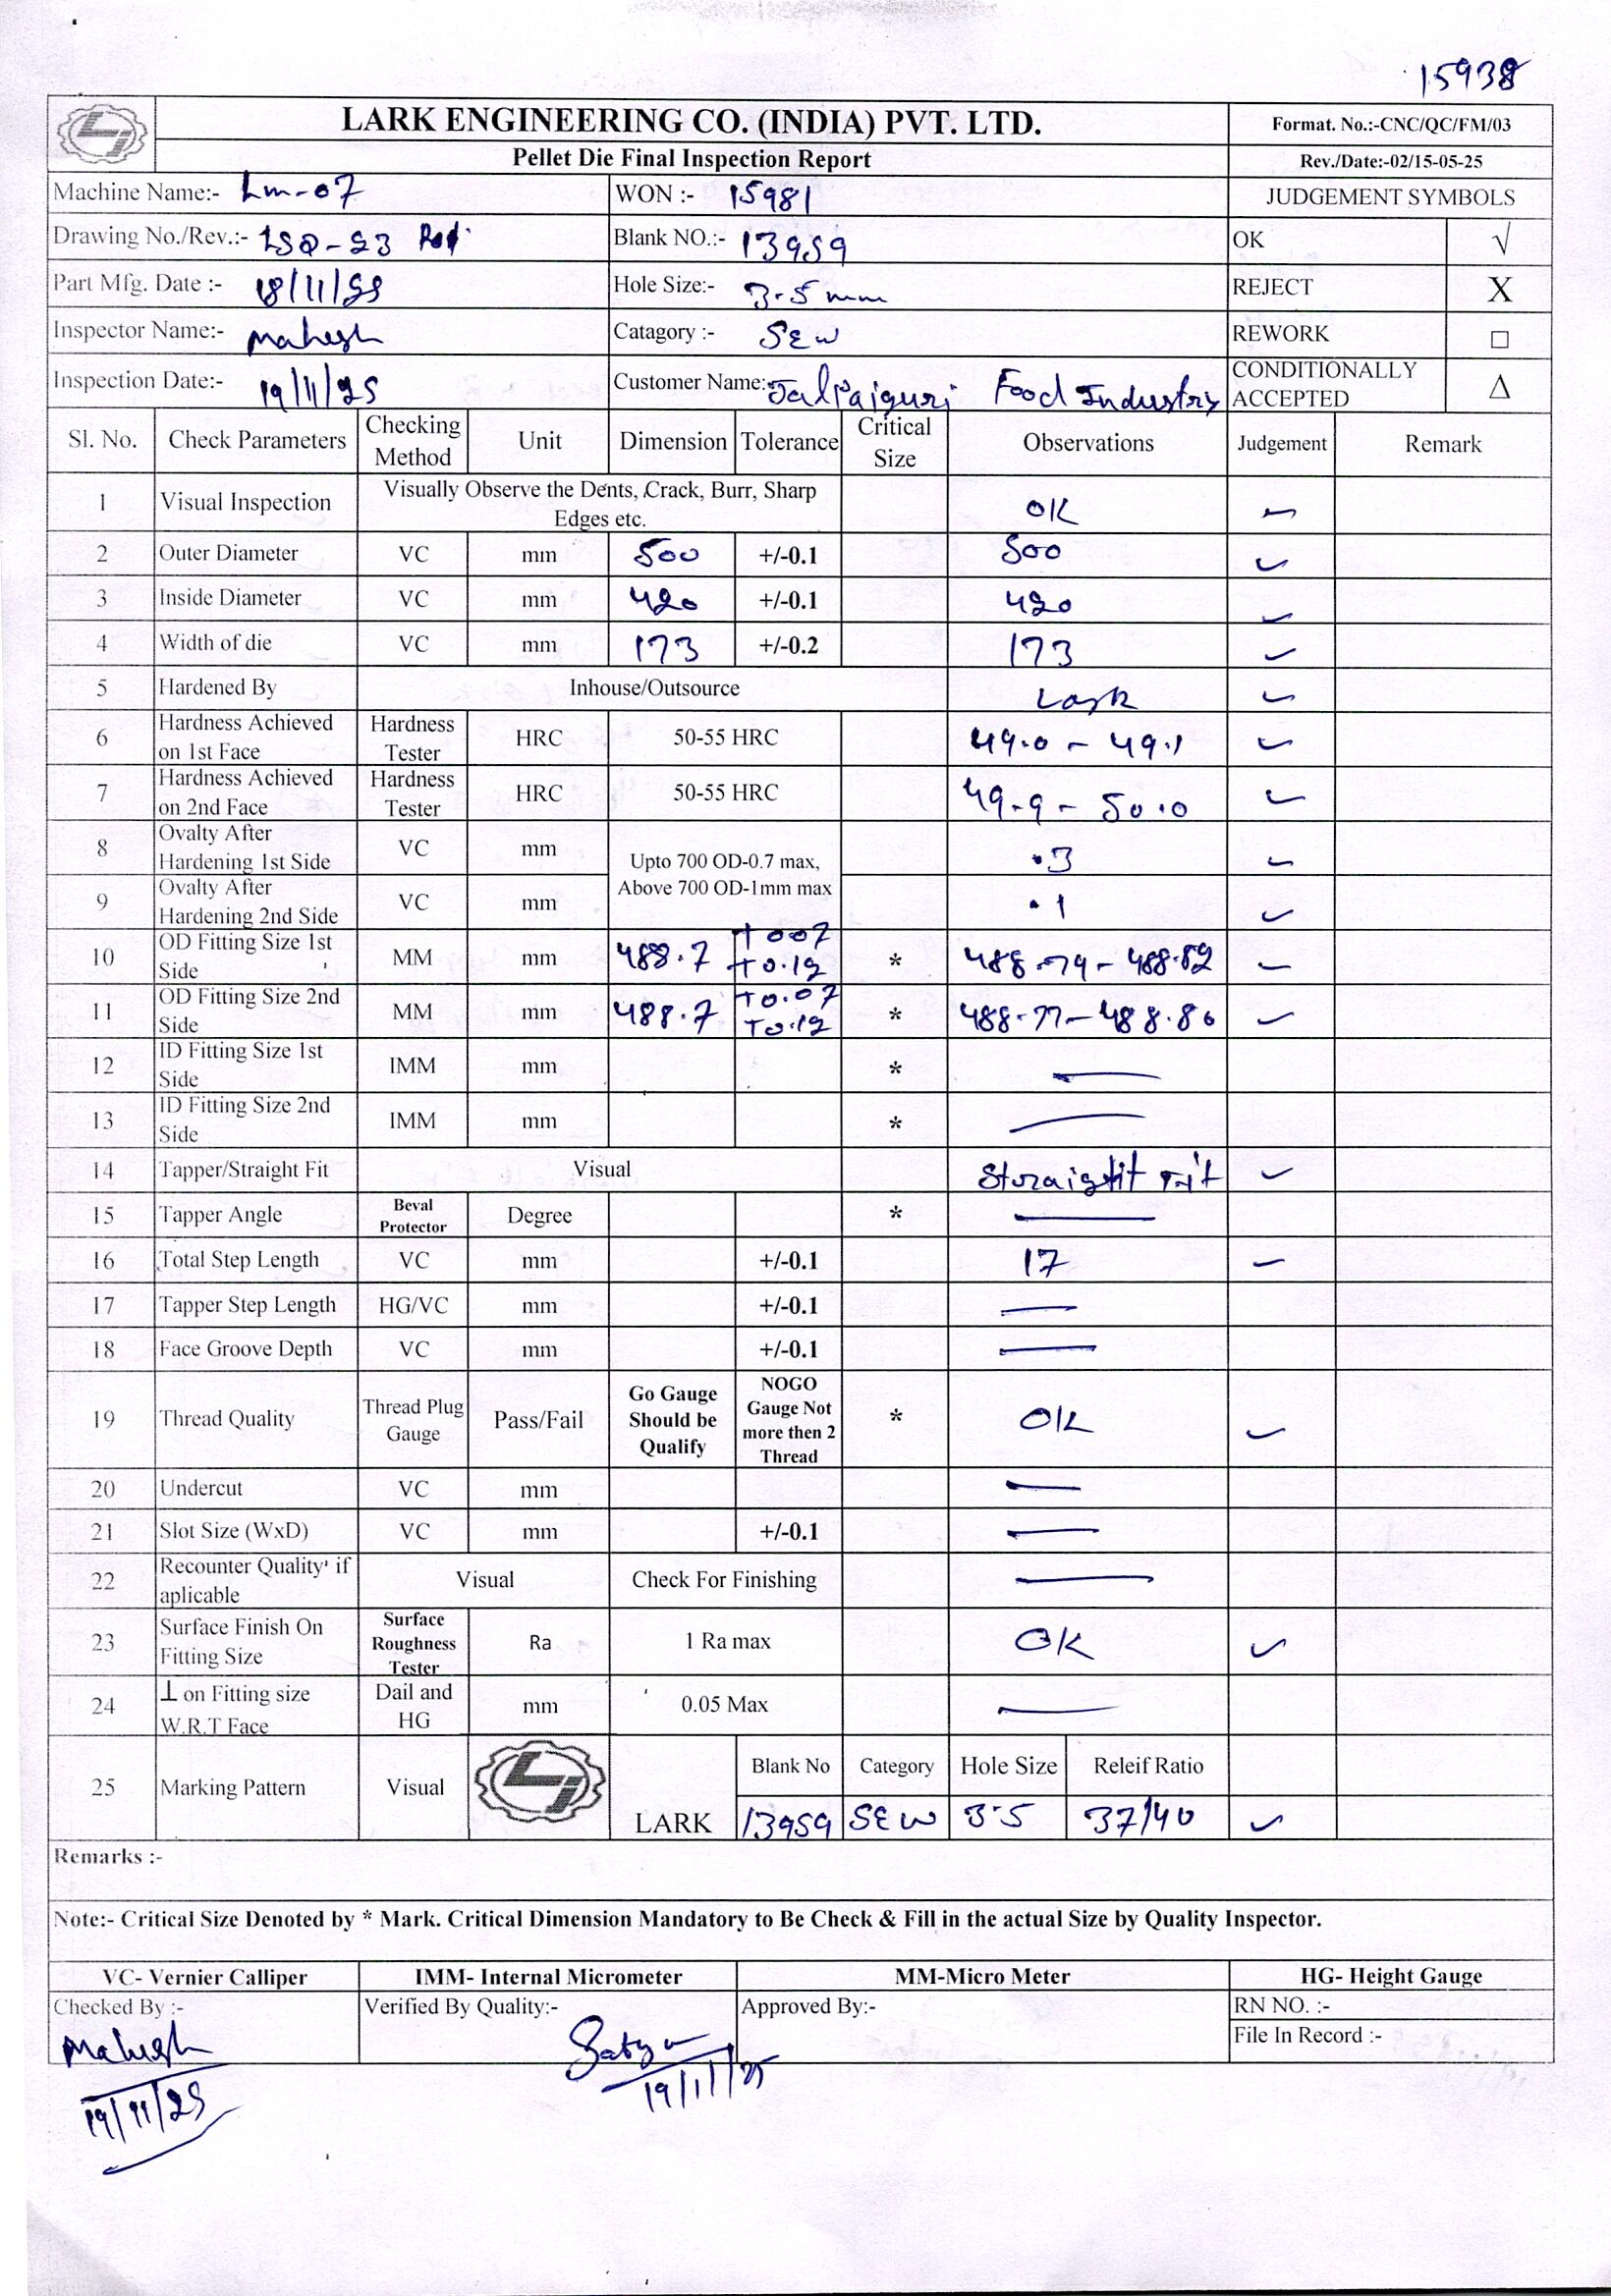 15938
LARK ENGINEERING CO. (INDIA) PVT. LTD.
Format. No.:-CNC/QC/FM/03
Pellet Die Final Inspection Report
Rev./Date:-02/15-05-25
Machine Name:- Lm-07 WON :- 15981 JUDGEMENT SYMBOLS
Drawing No./Rev.:- Blank NO.:- 13959 OK √
Part Mfg. Date :- 18/11/25 Hole Size:- 3.5 mm REJECT X
Inspector Name:- Mahesh Catagory :- SEW REWORK □
Inspection Date:- 19/11/25 Customer Name: Jalpaiguri Food Industry CONDITIONALLY ACCEPTED Δ
Sl. No. Check Parameters Checking Method Unit Dimension Tolerance Critical Size Observations Judgement Remark
1 Visual Inspection Visually Observe the Dents, Crack, Burr, Sharp Edges etc. OK
2 Outer Diameter VC mm 500 +/-0.1 500 ✓
3 Inside Diameter VC mm 420 +/-0.1 420 ✓
4 Width of die VC mm 173 +/-0.2 173 ✓
5 Hardened By Inhouse/Outsource Lark ✓
6 Hardness Achieved on 1st Face Hardness Tester HRC 50-55 HRC 49.0 - 49.1 ✓
7 Hardness Achieved on 2nd Face Hardness Tester HRC 50-55 HRC 49.9 - 50.0 ✓
8 Ovalty After Hardening 1st Side VC mm Upto 700 OD-0.7 max, Above 700 OD-1mm max .3 ✓
9 Ovalty After Hardening 2nd Side VC mm .1 ✓
10 OD Fitting Size 1st Side MM mm 488.7 +007 +0.12 * 488.79 - 488.82 ✓
11 OD Fitting Size 2nd Side MM mm 488.7 +0.07 +0.12 * 488.77 - 488.80 ✓
12 ID Fitting Size 1st Side IMM mm * —
13 ID Fitting Size 2nd Side IMM mm * —
14 Tapper/Straight Fit Visual Straight Fit ✓
15 Tapper Angle Beval Protector Degree * —
16 Total Step Length VC mm +/-0.1 17 ✓
17 Tapper Step Length HG/VC mm +/-0.1 —
18 Face Groove Depth VC mm +/-0.1 —
19 Thread Quality Thread Plug Gauge Pass/Fail Go Gauge Should be Qualify NOGO Gauge Not more then 2 Thread * OK ✓
20 Undercut VC mm —
21 Slot Size (WxD) VC mm +/-0.1 —
22 Recounter Quality if aplicable Visual Check For Finishing —
23 Surface Finish On Fitting Size Surface Roughness Tester Ra 1 Ra max OK ✓
24 ⊥ on Fitting size W.R.T Face Dail and HG mm 0.05 Max —
25 Marking Pattern Visual LARK Blank No Category Hole Size Releif Ratio
13959 SEW 3.5 37/40 ✓
Remarks :-
Note:- Critical Size Denoted by * Mark. Critical Dimension Mandatory to Be Check & Fill in the actual Size by Quality Inspector.
VC- Vernier Calliper IMM- Internal Micrometer MM-Micro Meter HG- Height Gauge
Checked By :- Verified By Quality:- Approved By:- RN NO. :-
File In Record :-
Mahesh Satya
19/11/25 19/11/25